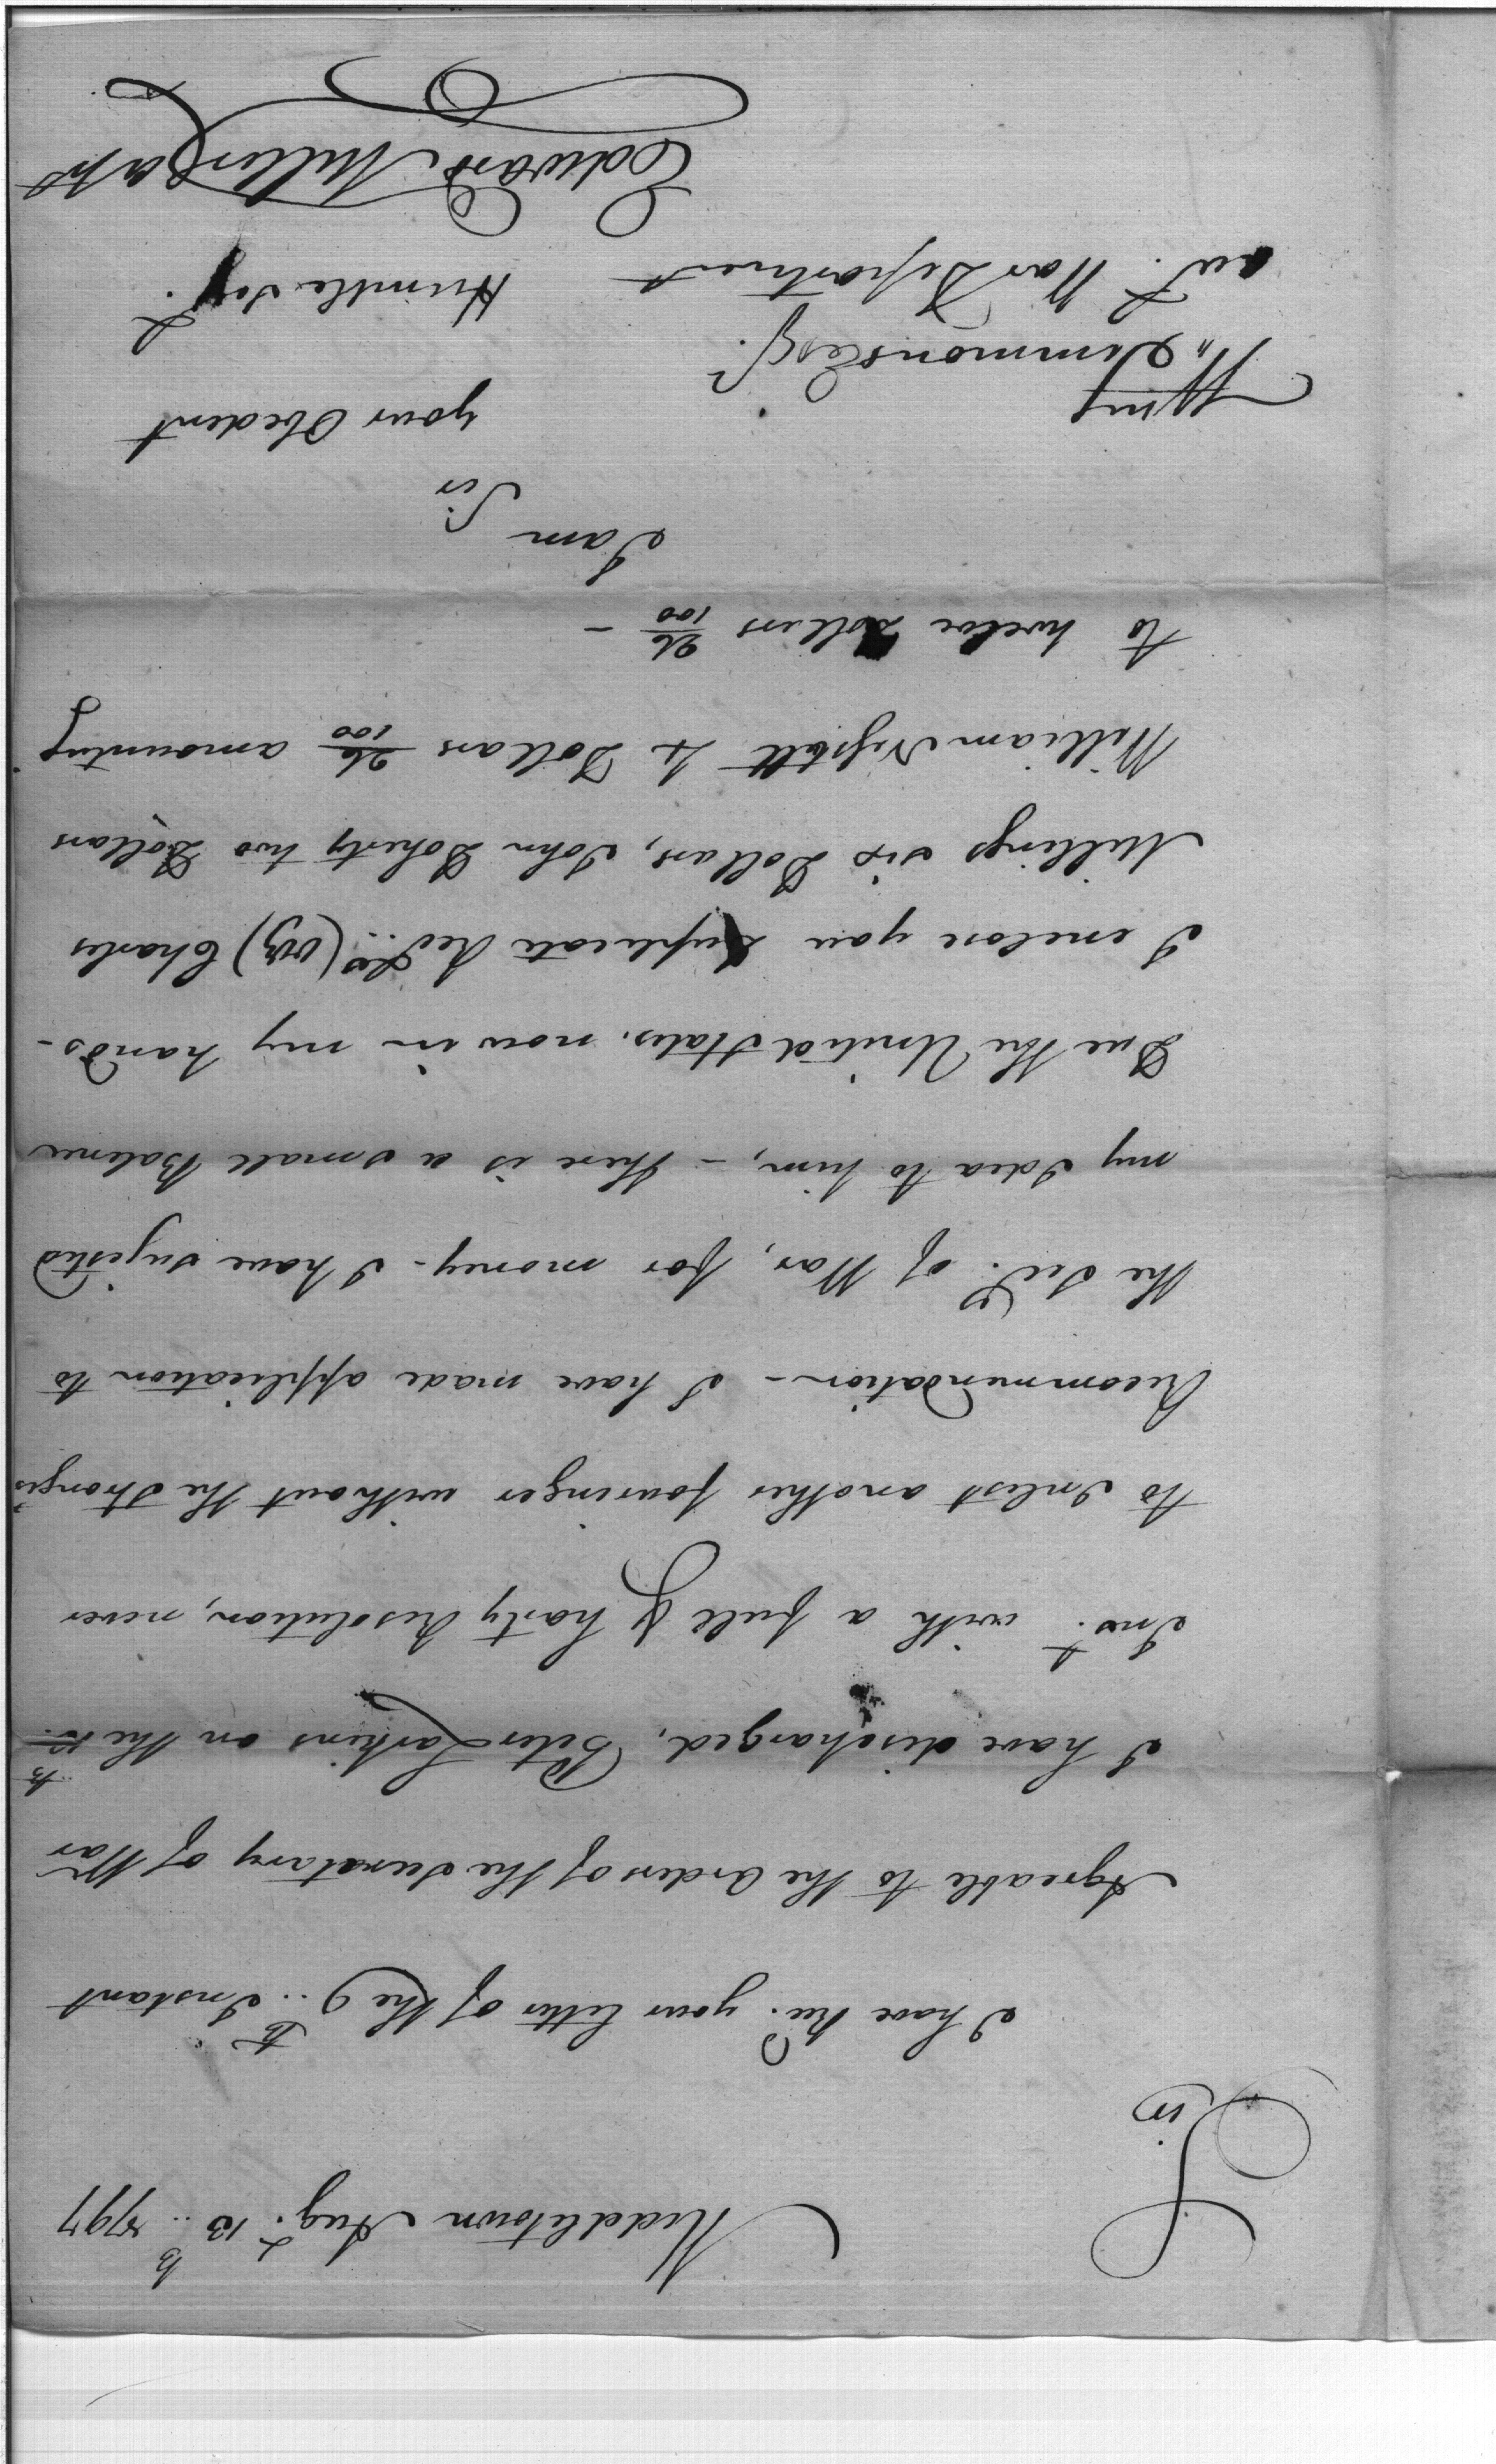 Middletown Augt. 13th 1797
Sir
I have Recd. your letter of the 9th Instant
Agreable to the Orders of the Secratary of War
I have discharged, Peter Larkins on the 12th
Inst. with a full & hasty Resolution, never
to Inlist another fouringer without the Stronges
Recommendation - I have made application to
the Secy. of War, for money - I have sujested
my Idea to him, - there is a small Balence
Due the United States, now in my hands -
I enclose you Duplicate Recets. (viz) Charles
Millings six Dollars, John Dohesty two Dollars
William 4 Dollars 26/100 amounting
to twelve Dollars 26/100 -
I am
Sir
your Obedent
Humble Sert.
Edward Miller Capt
Wm. Simmons Esqr.
act. War Department